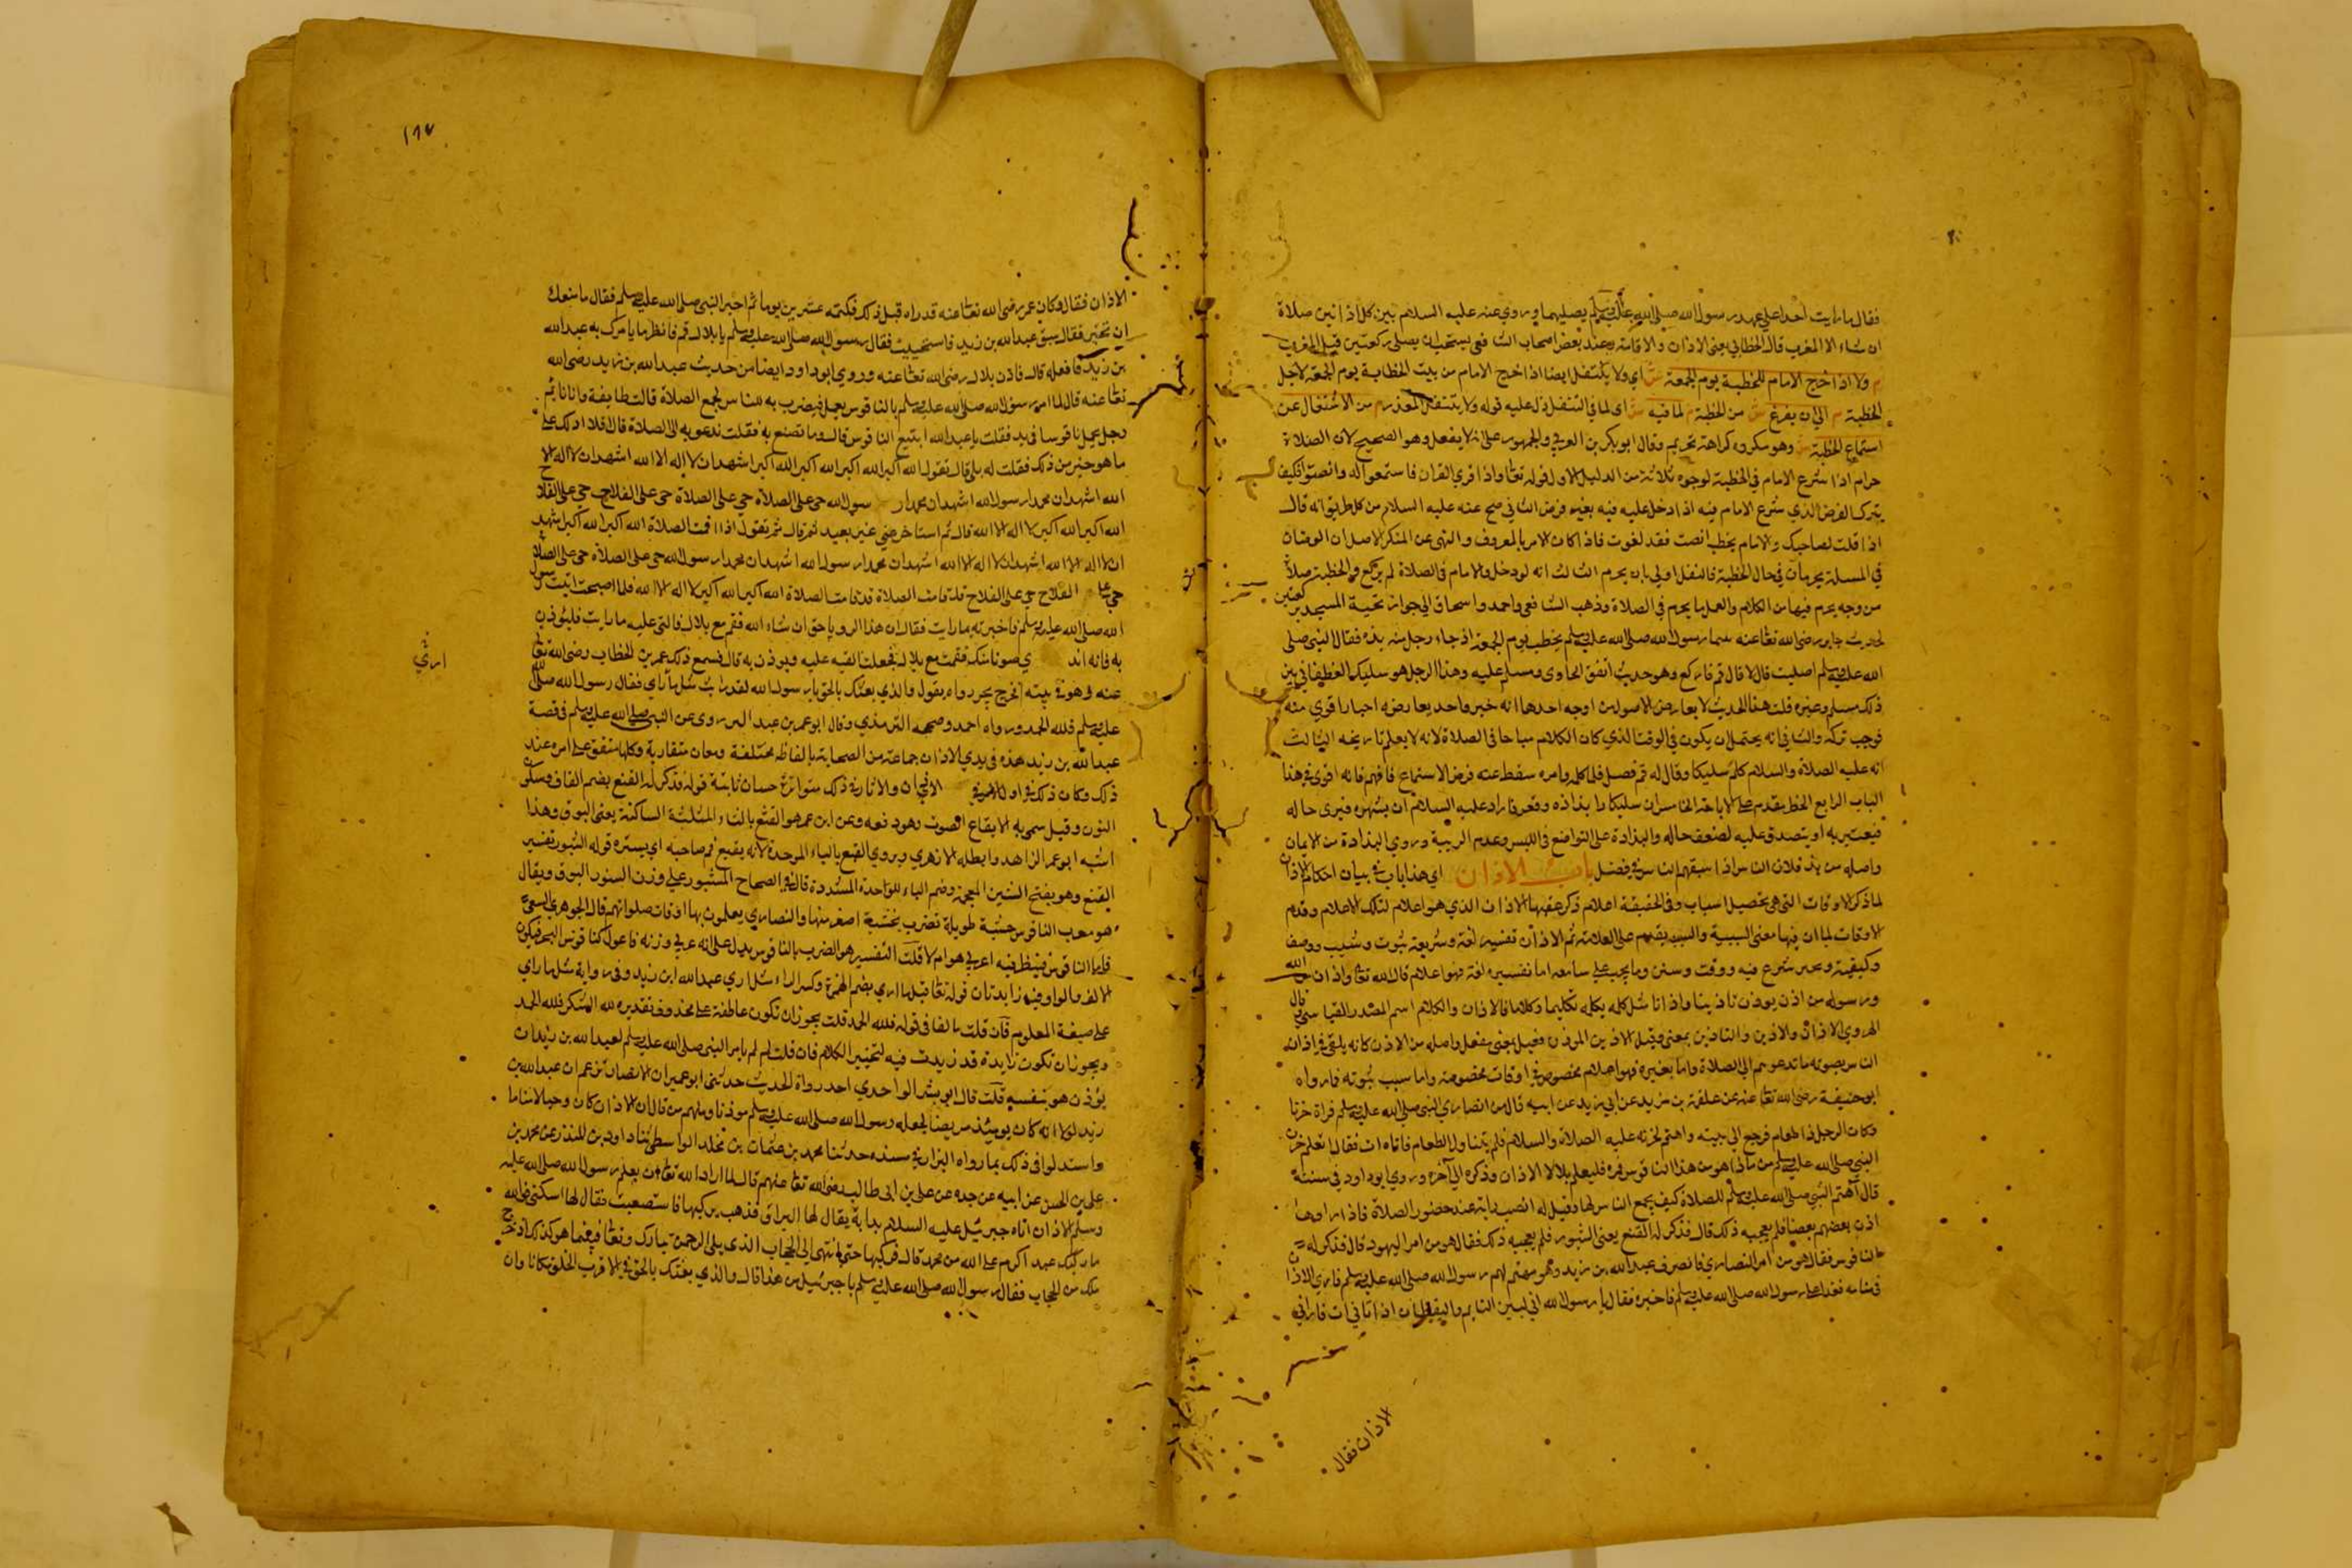 فقال ما رايت احدا على عهد رسول الله صلى الله عليه وسلم يصليهما وروي عنه عليه السلام بين كل اذانين صلاة
ان شاء الا المغرب قال الخطابي يعني الاذان والاقامة وعند بعض اصحاب الشافعي يستحب ان يصلي ركعتين قبل المغرب
م ولا اذا خرج الامام للخطبة يوم الجمعة ش اي ولا يتنفل ايضا اذا خرج الامام من بيت الخطابة يوم الجمعة لاجل
الخطبة م الي ان يفرغ ش من الخطبة م لما فيه ش اي لما في التنفل دل عليه قوله ولا يتنفل م من الاشتغال عن
استماع الخطبة ش وهو مكروه كراهة تحريم وقال ابو بكر بن العربي والجمهور على انه لا يفعل وهو الصحيح لان الصلاة
حرام اذا شرع الامام في الخطبة لوجوه ثلاثة من الدليل الاول قوله تعا واذا قري القران فاستمعوا له وانصتوا فكيف
يترك الفرض الذي شرع الامام فيه اذا دخل عليه فيه بغير فرض الثاني صح عنه عليه السلام من كل طريق انه قال
اذا قلت لصاحبك والامام يخطب انصت فقد لغوت فاذا كان الامر بالمعروف والنهي عن المنكر الاصلان الفرضان
في المسلة يحرمان في حال الخطبة فالنفل اولي بان يحرم الثالث انه لو دخل والامام في الصلاة لم يركع والخطبة صلاة
من وجه يحرم فيها من الكلام والعمل ما يحرم في الصلاة وذهب الشافعي واحمد واسحاق الي جواز تحية المسجد بركعتين
لحديث جابر رضي الله تعا عنه بينما رسول الله صلى الله عليه وسلم يخطب يوم الجمعة اذ جاء رجل فقال النبي صلى
الله عليه وسلم اصليت قال لا قال قم فاركع وهو حديث اتفق البخاري ومسلم عليه وهذا الرجل هو سليك الغطفاني بين
ذلك مسلم وغيره قلت هذا الحديث لا يعارض الاصول من اوجه احدها انه خبر واحد يعارضه اخبار اقوي منه
فوجب تركه والثاني انه يحتمل ان يكون في الوقت الذي كان الكلام مباحا في الصلاة لانه لا يعلم تاريخه الثالث
انه عليه الصلاة والسلام كلم سليكا وقال له قم فصل فلما كلمه وامره سقط عنه فرض الاستماع فافهم فانه اقوي في هذا
الباب الرابع الحظر يقدم على الاباحة الخامس ان سليكا ذا بذاذة وفقر فاراد عليه السلام ان يشهره فيرى حاله
فيعتبر به او يتصدق عليه لضعف حاله والبذاذة على التواضع في اللبس وعدم الزينة وروي البذاذة من الايمان
واصله من بذ فلان الناس اذا سبقهم الناس في فضل باب الاذان اي هذا باب في بيان احكام الاذان
لما ذكر الاوقات التي هي تحصيل اسباب وفي الحقيقة اعلام ذكر عقبها الاذان الذي هو اعلام لتلك الاعلام وقدم
الاوقات لما ان فيها معنى السببية والسبب يقدم على العلامة ثم الاذان تفسير لغة وشريعة ثبوت وسبب ووصف
وكيفية ومحل شرع فيه ووقت وسنن وما يجب على سامعه اما تفسيره لغة فهو اعلام قال الله تعا واذان من الله
ورسوله من اذن يوذن تاذينا واذانا مثل كلمه يكلمه تكليما وكلاما فالاذان والكلام اسم المصدر القياسي قال
الهروي الاذان والاذين والتاذين بمعنى وقيل الاذين الموذن فعيل بمعنى مفعل واصله من الاذن كانه يلقي في اذان
الناس بصوته ما تدعوهم الي الصلاة واما بغيره فهو اعلام مخصوص في اوقات مخصوصة واما سبب ثبوته فارواه
ابو حنيفة رضي الله تعا عنه عن علقمة بن مرثد عن ابن بريدة عن ابيه قال من انصاري النبي صلى الله عليه وسلم فراه حزنا
وكان الرجل ذا طعام فرجع الي بيته واهتم لحزنه عليه الصلاة والسلام فلم يتناول الطعام فاتاه ات فقال اتعلم حزن
النبي صلى الله عليه وسلم من ماذا هو من هذا الناقوس فمره فليعلم بلالا الاذان وذكره الي آخره وروي ابو داود في سننه
قال اهتم النبي صلى الله عليه وسلم للصلاة كيف يجمع الناس لها فقيل له انصب راية عند حضور الصلاة فاذا راوها
اذن بعضهم بعضا فلم يعجبه ذلك قال فذكر له القنع يعني الشبور فلم يعجبه ذلك فقال هو من امر اليهود قال فذكر له
الناقوس فقال هو من امر النصاري فانصرف عبدالله بن زيد وهو مهتم لهم رسول الله صلى الله عليه وسلم فاري الاذان
في منامه فغدا على رسول الله صلى الله عليه وسلم فاخبره فقال يا رسول الله اني لبين النايم واليقظان اذ اتاني ات فاراني
الاذان فقال
١١٧
الاذان فقال وكان عمر رضي الله تعا عنه قد راه قبل ذلك فكتمه عشرين يوما ثم اخبر النبي صلى الله عليه وسلم فقال ما منعك
ان تخبرني فقال سبق عبدالله بن زيد فاستحييت فقال رسول الله صلى الله عليه وسلم يا بلال قم فانظر ما يامرك به عبدالله
بن زيد فافعله قال فاذن بلال رضي الله تعا عنه وروي ابو داود ايضا من حديث عبدالله بن زيد رضي الله
تعا عنه قال لما امر رسول الله صلى الله عليه وسلم بالناقوس يعمل فيضرب به للناس لجمع الصلاة قال طايفة وانا نايم
رجل يحمل ناقوسا في يده فقلت يا عبدالله ابتيع الناقوس قال وما تصنع به فقلت ندعو به الي الصلاة قال افلا ادلك على
ما هو خير من ذلك فقلت له بلى قال تقول الله اكبر الله اكبر الله اكبر الله اكبر اشهد ان لا اله الا الله اشهد ان لا اله الا
الله اشهد ان محمدا رسول الله اشهد ان محمدا رسول الله حي على الصلاة حي على الصلاة حي على الفلاح حي على الفلاح
الله اكبر الله اكبر لا اله الا الله قال ثم استاخر عني غير بعيد ثم قال ثم تقول اذا اقمت الصلاة الله اكبر الله اكبر اشهد
ان لا اله الا الله اشهد ان لا اله الا الله اشهد ان محمدا رسول الله اشهد ان محمدا رسول الله حي على الصلاة حي على الصلاة
حي على الفلاح حي على الفلاح قد قامت الصلاة قد قامت الصلاة الله اكبر الله اكبر لا اله الا الله فلما اصبحت اتيت رسول
الله صلى الله عليه وسلم فاخبرته بما رايت فقال ان هذا الرويا حق ان شاء الله فقم مع بلال فالقي عليه ما رايت فليوذن
به فانه اند ي صوتا منك فقمت مع بلال فجعلت القيه عليه ويوذن به قال فسمع ذلك عمر بن الخطاب رضي الله تعا
عنه وهو في بيته فخرج يجر رداه يقول والذي بعثك بالحق يا رسول الله لقد رايت مثل ما راى فقال رسول الله صلى الله
عليه وسلم فلله الحمد ورواه احمد وصححه الترمذي وقال ابو عمر بن عبد البر روى عن النبي صلى الله عليه وسلم في قصة
عبدالله بن زيد هذه في بدي الاذان جماعة من الصحابة بالفاظ مختلفة ومعان متقاربة وكلها متفق على امره عند
ذلك وكان ذلك في اول امره في الاذان والاثار في ذلك متواترة حسان ثابتة قوله فذكر له القنع بضم القاف وسكون
النون وقيل سمي به لاقناع الصوت وهو رفعه وعن ابن عمر هو القثع بالثاء المثلثة الساكنة يعني البوق وهذا
اثبته ابو عمر الزاهد وابطله الازهري ويروي القبع بالباء الموحدة لانه يقبع فم صاحبه اي يستره قوله الشبور تفسير
القنع وهو بفتح الشين المعجمة وضم الباء الموحدة المشددة قال في الصحاح الشبور على وزن السنور البوق ويقال
هو معرب الناقوس خشبة طويلة تضرب بخشبة اصغر منها والنصاري يعلمون بها اوقات صلواتهم قال الجوهري
فاما الناقوس فينظر فيه اعربي هو ام لا قلت التفسير هو الضرب بالناقوس يدل على انه عربي وزنه فاعول كناقوس البحر فيكون
الالف والواو فيه زايدتان قوله تعا قيل ما اري بضم الهمزة وكسر الراء مثل اري عبدالله ابن زيد وفي رواية مثل ما راي
على صيغة المعلوم فان قلت ما الفا في قوله فلله الحمد قلت يجوز ان تكون عاطفة على محذوف تقديره لله الشكر فلله الحمد
ويجوز ان تكون زايدة قد زيدت فيه لتحسين الكلام فان قلت لم لم يامر النبي صلى الله عليه وسلم لعبدالله بن زيد ان
يؤذن هو بنفسه قلت قال ابو بشر الواحدي احد رواة الحديث حدثني ابو عمير ان الانصار تزعم ان عبدالله بن
زيد لولا انه كان يومئذ مريضا لجعله رسول الله صلى الله عليه وسلم موذنا ومنهم من قال ان الاذان كان وحيا لا مناما
واستدلوا في ذلك بما رواه البزار في مسنده حدثنا محمد بن عثمان بن مخلد الواسطي ثنا داود بن المنذر عن محمد بن
علي بن الحسن عن ابيه عن جده عن علي بن ابي طالب رضي الله تعا عنهم قال لما اراد الله تعا ان يعلم رسول الله صلى الله عليه
وسلم الاذان اتاه جبرئيل عليه السلام بدابة يقال لها البراق فذهب يركبها فاستصعبت فقال لها اسكني فوالله
ما ركبك عبد اكرم على الله من محمد قال فركبها حتى انتهى الي الحجاب الذي يلي الرحمن تبارك وتعا فبينما هو كذلك اذ خرج
ملك من الحجاب فقال رسول الله صلى الله عليه وسلم يا جبرئيل من هذا قال والذي بعثك بالحق اني لاقرب الخلق مكانا وان